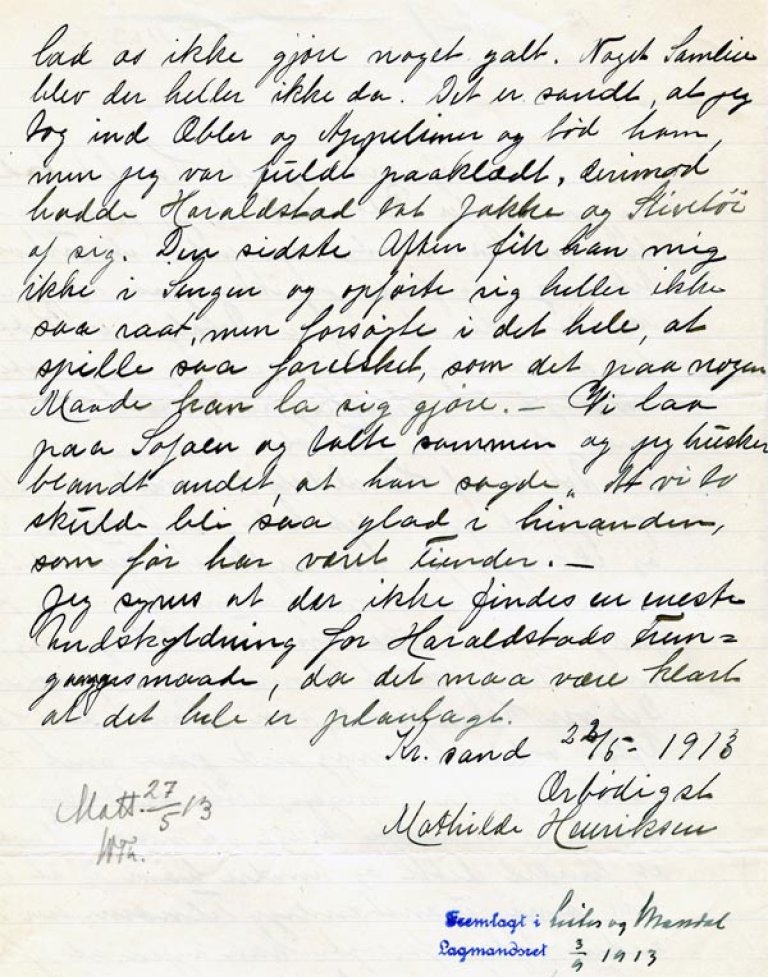 lad os ikke gjöre noget galt. Noget Samleie
blev der heller ikke da. Det er sandt, at jeg
tog ind Æbler og Appelsiner og böd ham,
men jeg var fuldt paaklædt, derimod
hadde Haraldstad tat Jakke og Stivetöi
af sig. Den sidste Aften fik han mig
ikke i Sengen og opförte sig heller ikke
saa raat, men forsögte i det hele, at
spille saa forelsket, som det paa nogen
Maade kan la sig gjöre. – Vi laa
paa Sofaen og talte sammen og jeg husker
blandt andet, at han sagde „At vi to
skulde bli saa glad i hinanden,
som för har været Fiender. –
Jeg synes at der ikke findes en eneste
Undskyldning for Haraldstads Frem=
gangsmaade, da det maa være klart
at det hele er planlagt.
Kr. sand 22/5- 1913
Ærbödigst
Mathilde Henriksen
Mott. 27/5 13
WTh.
Fremlagt i Lister og Mandal
Lagmandsret 3/9 1913